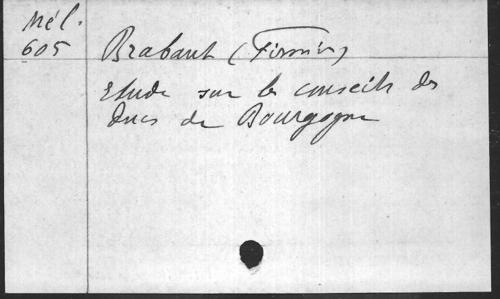 Mél.
605
Brabant (Firmin)
Etude sur les conseils des
ducs de Bourgogne